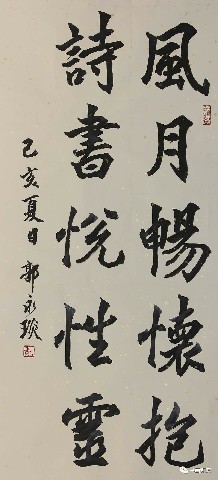 風月暢懷抱
詩書悅性靈
己亥夏日 郭永琰